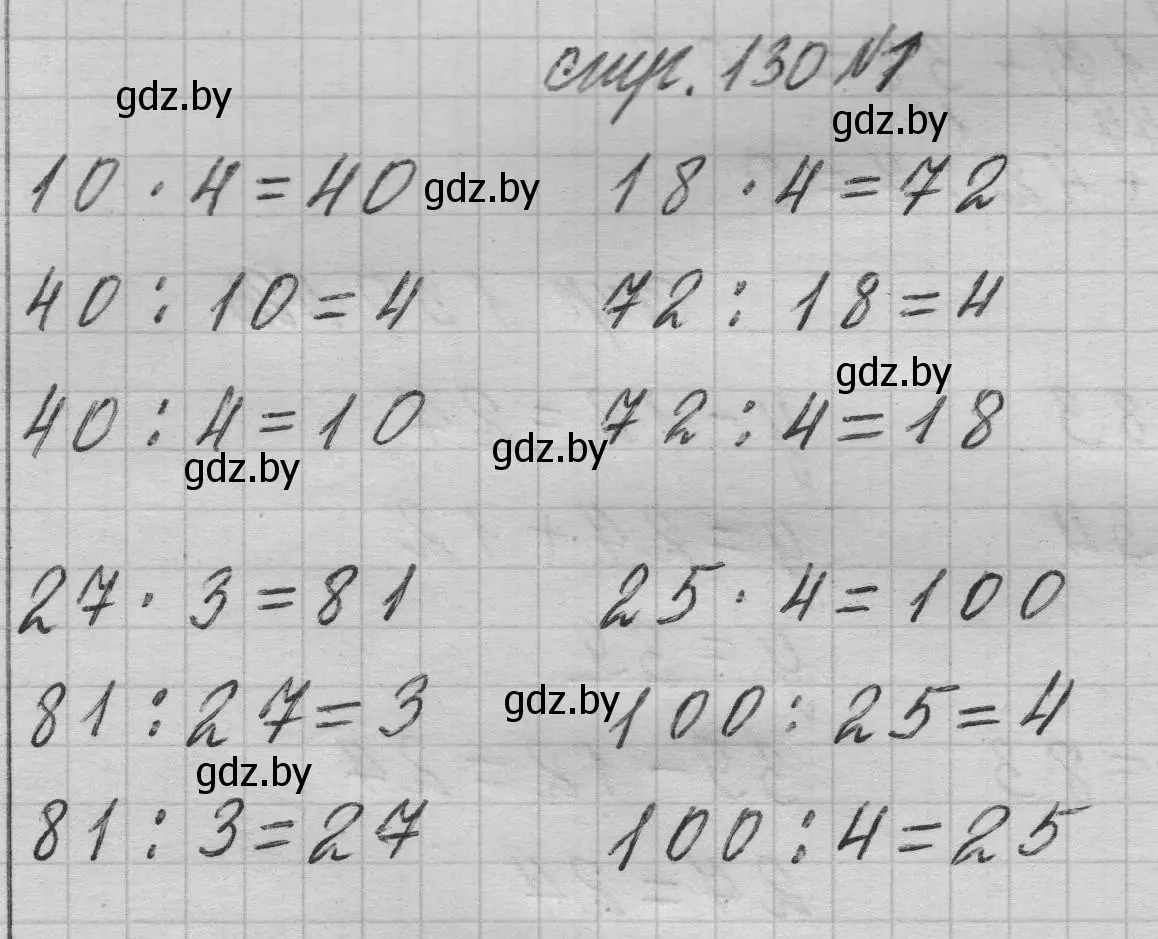 стр. 130 №1
gdz.by
gdz.by
10 · 4 = 40 gdz.by 18 · 4 = 72
40 : 10 = 4 72 : 18 = 4
gdz.by
40 : 4 = 10 gdz.by 72 : 4 = 18
gdz.by
27 · 3 = 81 25 · 4 = 100
81 : 27 = 3 gdz.by 100 : 25 = 4
gdz.by
81 : 3 = 27 100 : 4 = 25